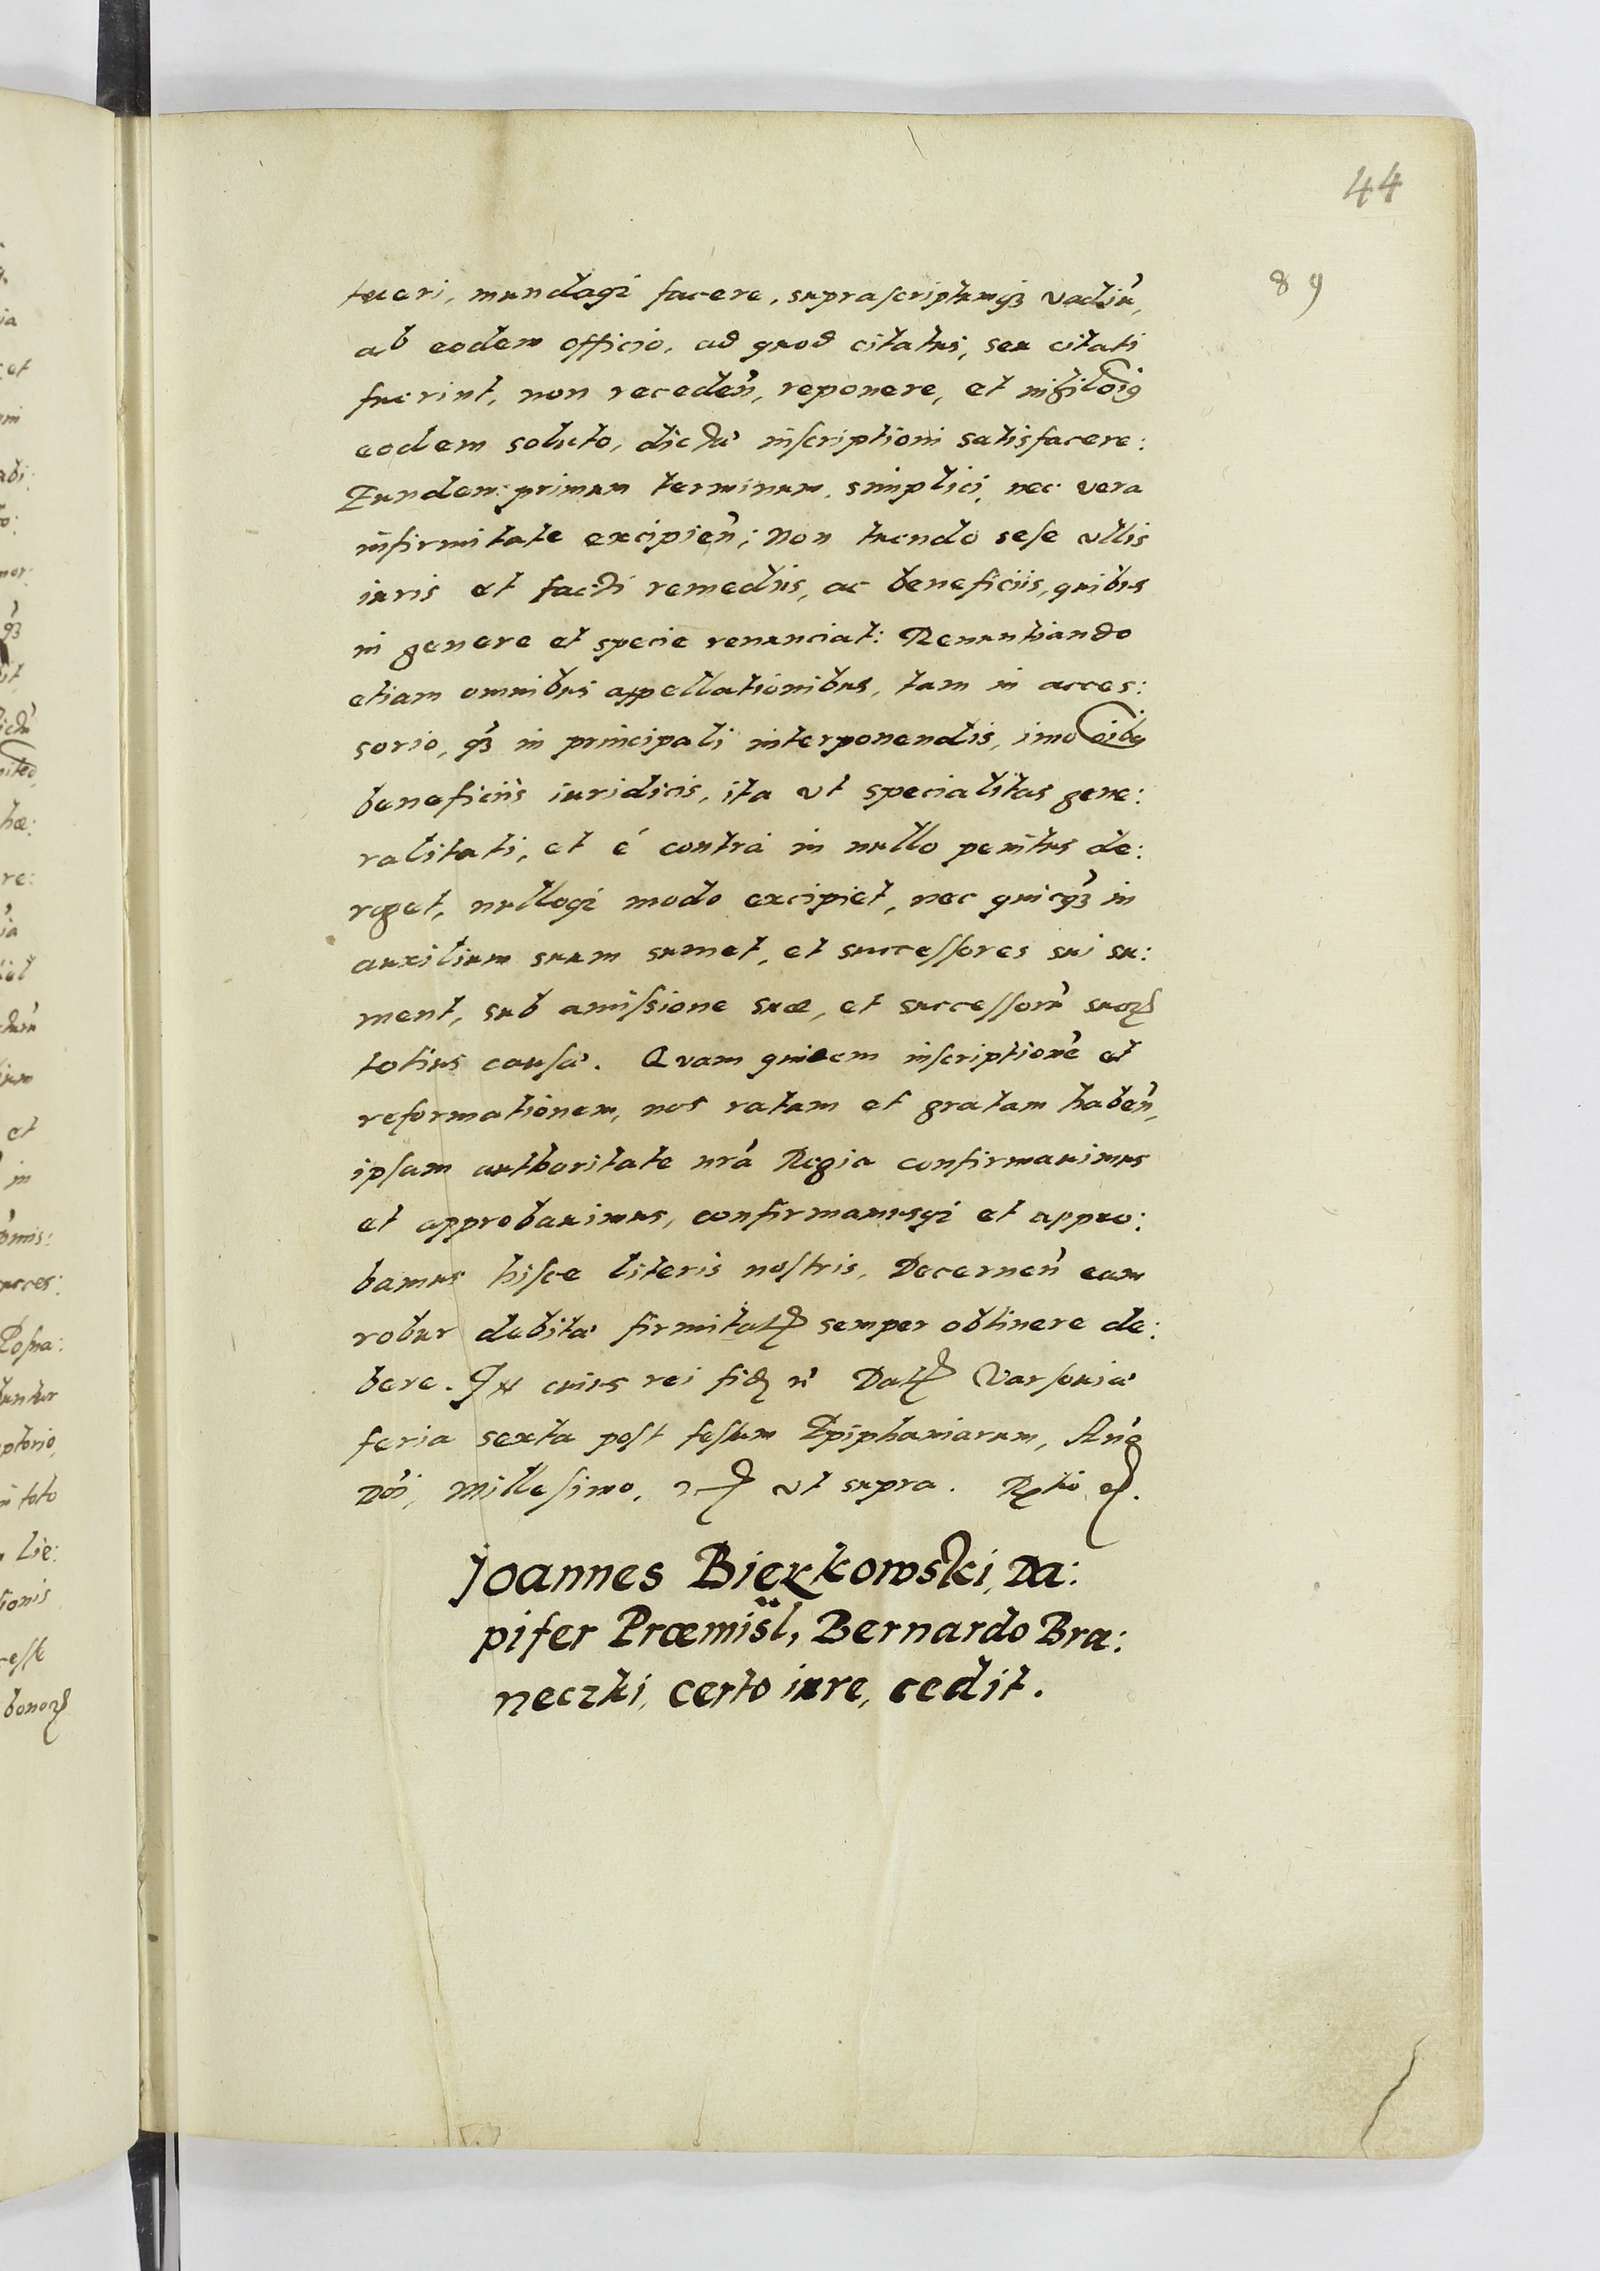 44
89
tueri, mundaqz facere, suprascriptumqz vadiũ,
ab eodem officio, ad quod citatus, seu citati
fuerint, non receden̄, reponere, et nihiloīg
eodem soluto, dictæ inscriptioni satisfacere:
Eundem primum terminum, simplici, nec vera
infirmitate excipien̄; Non tuendo sese ullis
iuris et facti remediis, ac beneficiis, quibus
in genere et specie renunciat: Renuntiando
etiam omnibus appellationibus, tam in acces:
sorio, qz in principali interponendis, imo oībus
beneficiis iuridicis, ita vt specialitas gene:
ralitati, et é contra in nullo penitus de:
roget, nulloqz modo excipiet, nec quicqz in
auxilium suum sumet, et successores sui su:
ment, sub amissione suæ, et successorũ suoꝝ
totius causæ. Quam quidem inscriptionē et
reformationem, nos ratam et gratam haben̄,
ipsam authoritate nr̄a Regia confirmauimus
et approbauimus, confirmamusqz et appro:
bamus hisce literis nostris, Decernen̄ eam
robur debitæ firmitatꝭ semper obtinere de:
bere. In cuius rei fidē Datꝭ Varsouiæ
feria sexta post festum Epiphaniarum, An̄o
Dn̄i, Millesimo, ut supra. Rꝑtio
Joannes Bierkowski, Da:
pifer Præmisl, Bernardo Bra:
neczki, certo iure, cedit.